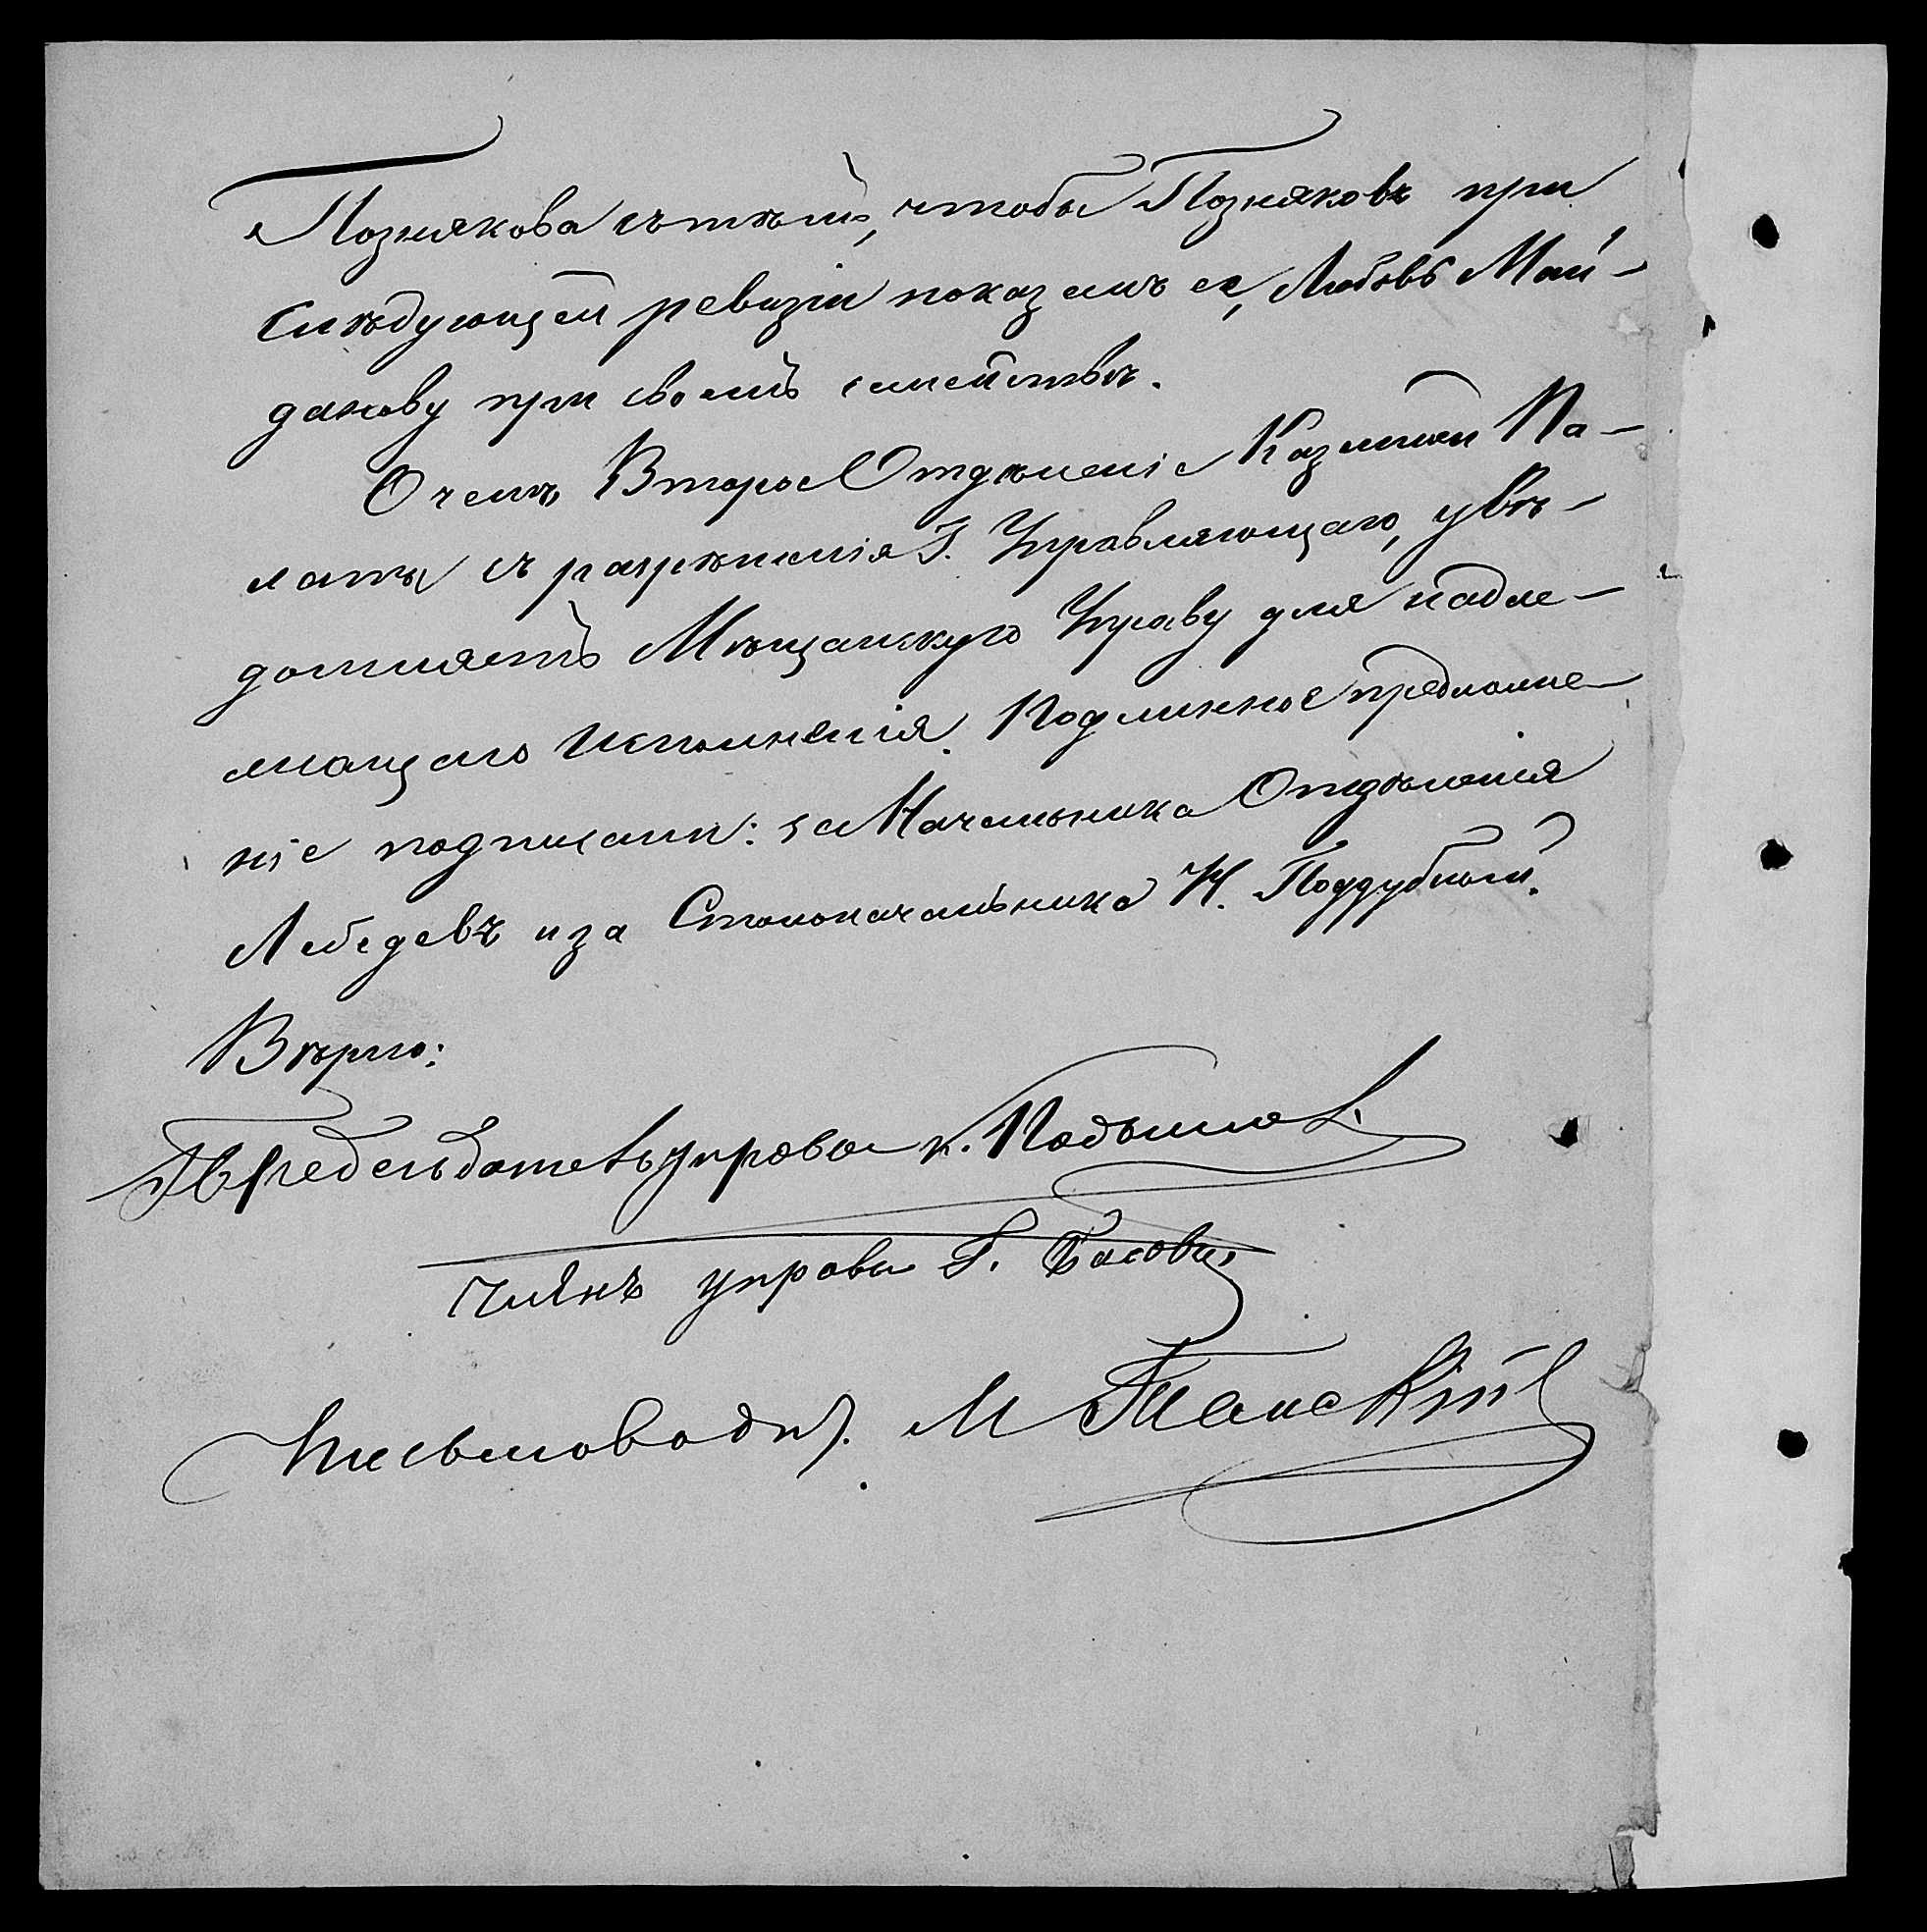 Познякова съ тѣмъ, чтобы Позняковъ при
слѣдующей ревизіи показалъ ее, Любовь Май-
данову при своемъ семействѣ.
О чемъ Второе Отдѣленіе Казенной Па-
латы съ разрѣшенія Г. Управляющаго, увѣ-
домляетъ Мѣщанскую Управу для надле-
жащаго исполненія. Подлинное предложе-
ніе подписали: за Начальника Отдѣленія
Лебедевъ и за Столоначальника Н. Поддубный.
Вѣрно:
Предсѣдатель управы к.
Членъ управы Г. Басовъ
Письмовод. М